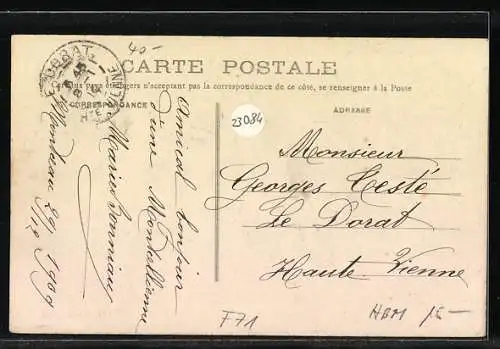 40-
CARTE POSTALE
pays étrangers n'acceptant pas la correspondance de ce côté, se renseigner à la Poste
CORRESPONDANCE
ADRESSE
23084
Amical bonjour
d'une Montellienne
Marie
29 1909
Monsieur
Georges Testé
Le Dorat
Haute Vienne
F71
HBM 15-